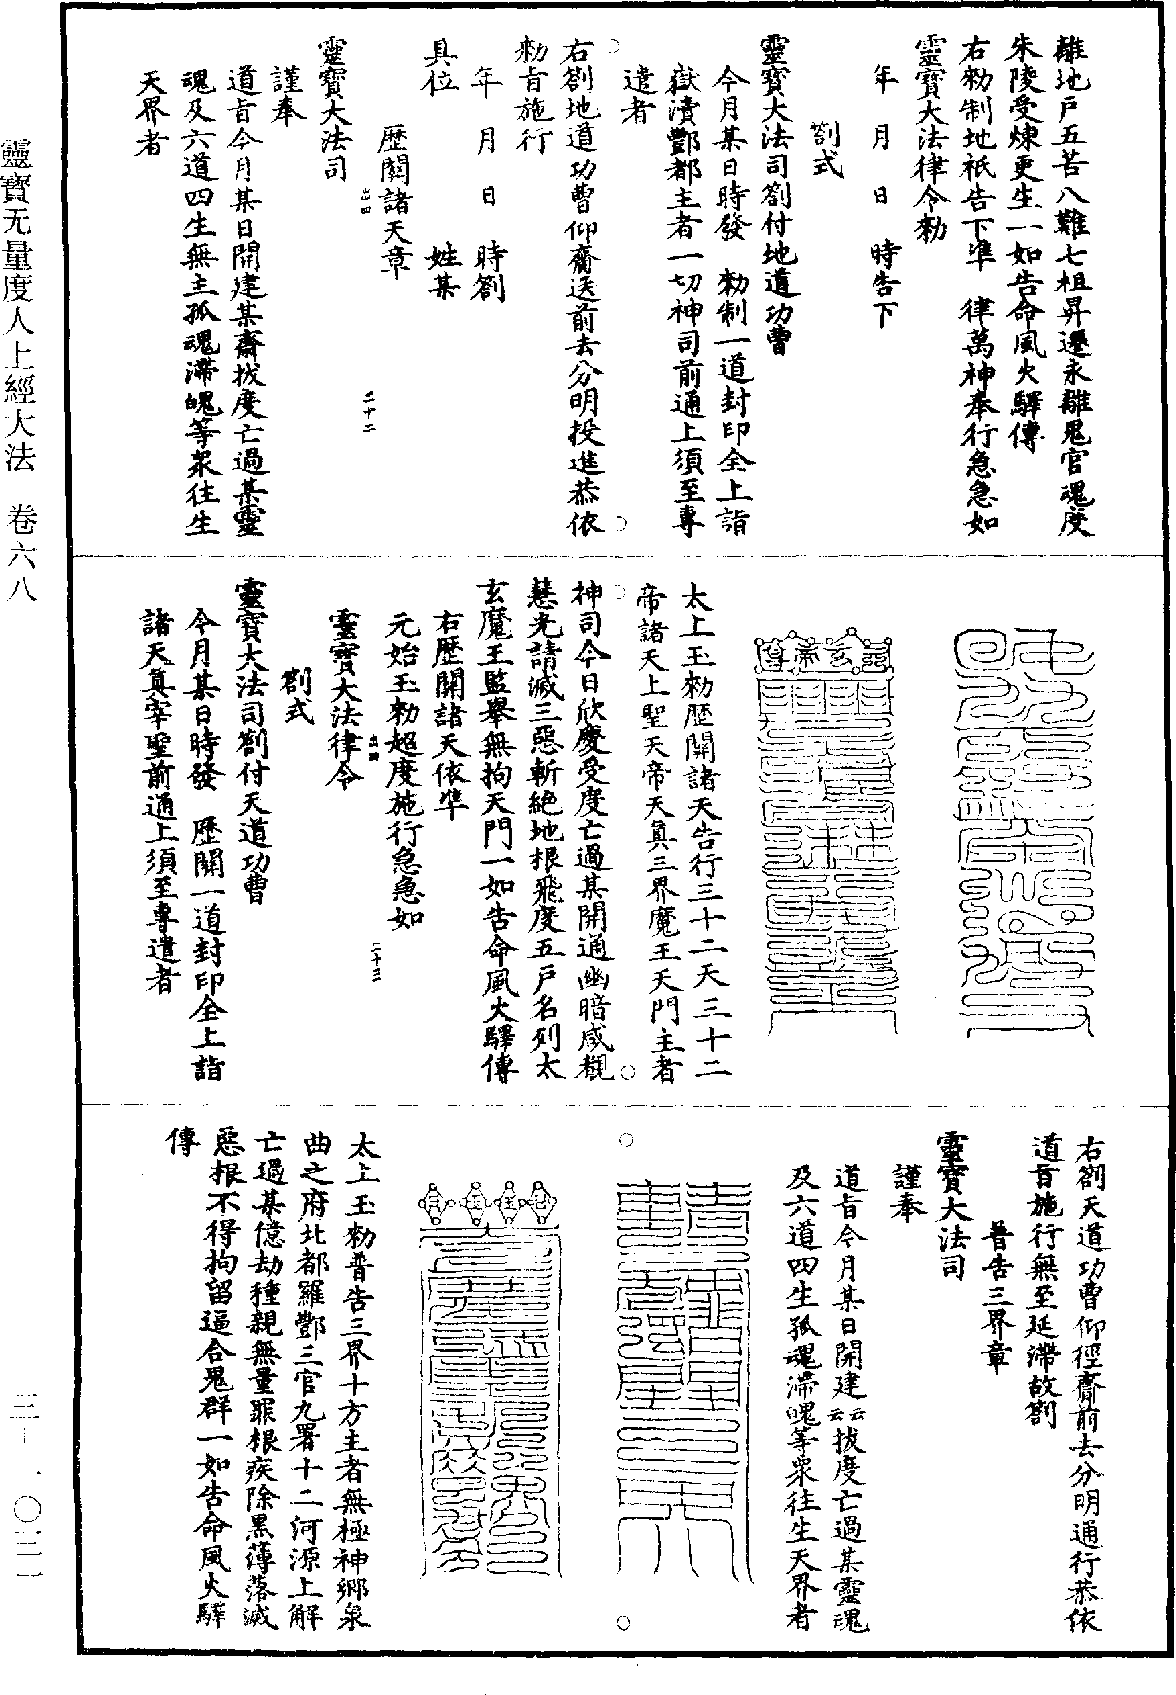 離地戶五苦八難七祖昇遷永離鬼官魂度
朱陵受煉更生一如告命風火驛傳
右勑制地祇告下準　律萬神奉行急急如
靈寶大法律令勑
年　月　日　時告下
劄式
靈寶大法司劄付地道功曹
今月某日時發　勑制一道封印全上詣
嶽瀆酆都主者一切神司前通上須至專
遣者
右劄地道功曹仰齎送前去分明投進恭依
勑旨施行
年　月　日　時劄
具位　姓某
歷關諸天章
靈寶大法司
謹奉
道旨今月某日開建某齋拔度亡過某靈
魂及六道四生無主孤魂滯魄等衆往生
天界者
太上玉勑歷關諸天告行三十二天三十二
帝諸天上聖天帝天真三界魔王天門主者
神司今日欣慶受度亡過某開通幽暗咸覩
慧光請滅三惡斬絕地根飛度五戶名列太
玄魔王監舉無拘天門一如告命風火驛傳
右歷關諸天依準
元始玉勑超度施行急急如
靈寶大法律令
劄式
靈寶大法司劄付天道功曹
今月某日時發　歷關一道封印全上詣
諸天真宰聖前通上須至專遣者
右劄天道功曹仰徑齎前去分明通行恭依
道旨施行無至延滯故劄
普告三界章
靈寶大法司
謹奉
道旨今月某日開建云云拔度亡過某靈魂
及六道四生孤魂滯魄等衆往生天界者
太上玉勑普告三界十方主者無極神鄉泉
曲之府北都羅酆三官九署十二河源上解
亡過某億劫種親無量罪根疾除黑薄落滅
惡根不得拘留逼合鬼群一如告命風火驛
傳
靈寶无量度人上經大法　卷六八